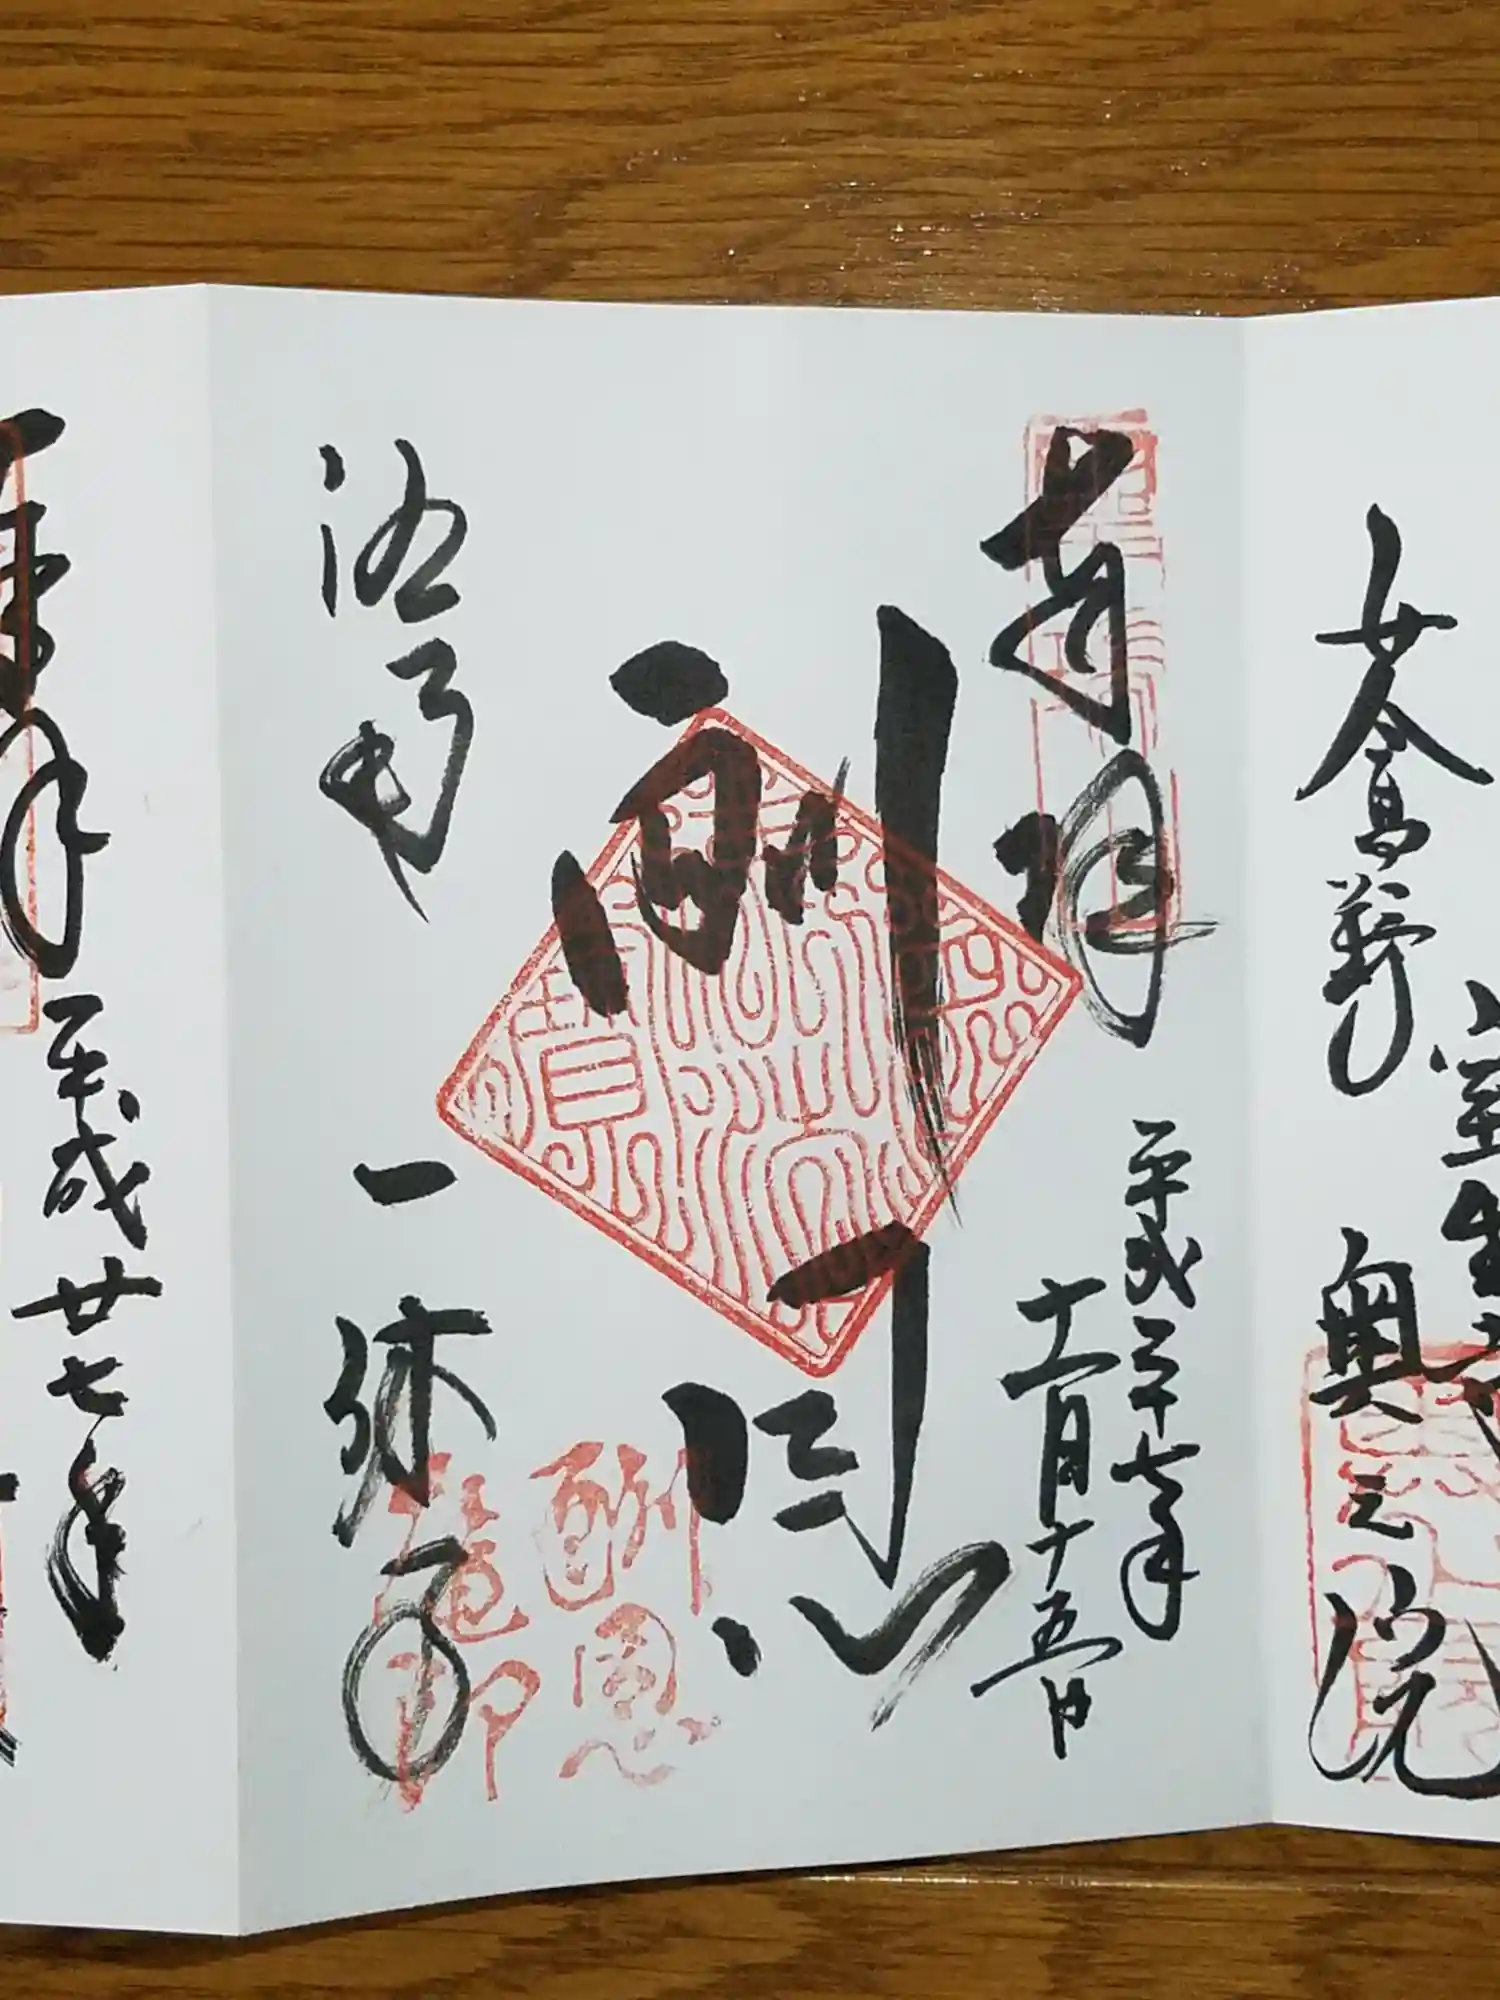 室生寺
女人高野 奥之院
奉拝
平成二十七年
十一月十五日
酬恩
洛南 一休寺
酬恩
庵印
奉拝
平成廿七年